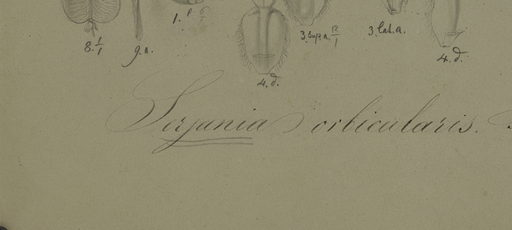 8. 1/1
9. a.
1.
3. sup. a. 12/1
3. lat. a.
4. d.
4. d.
Serjania orbicularis.